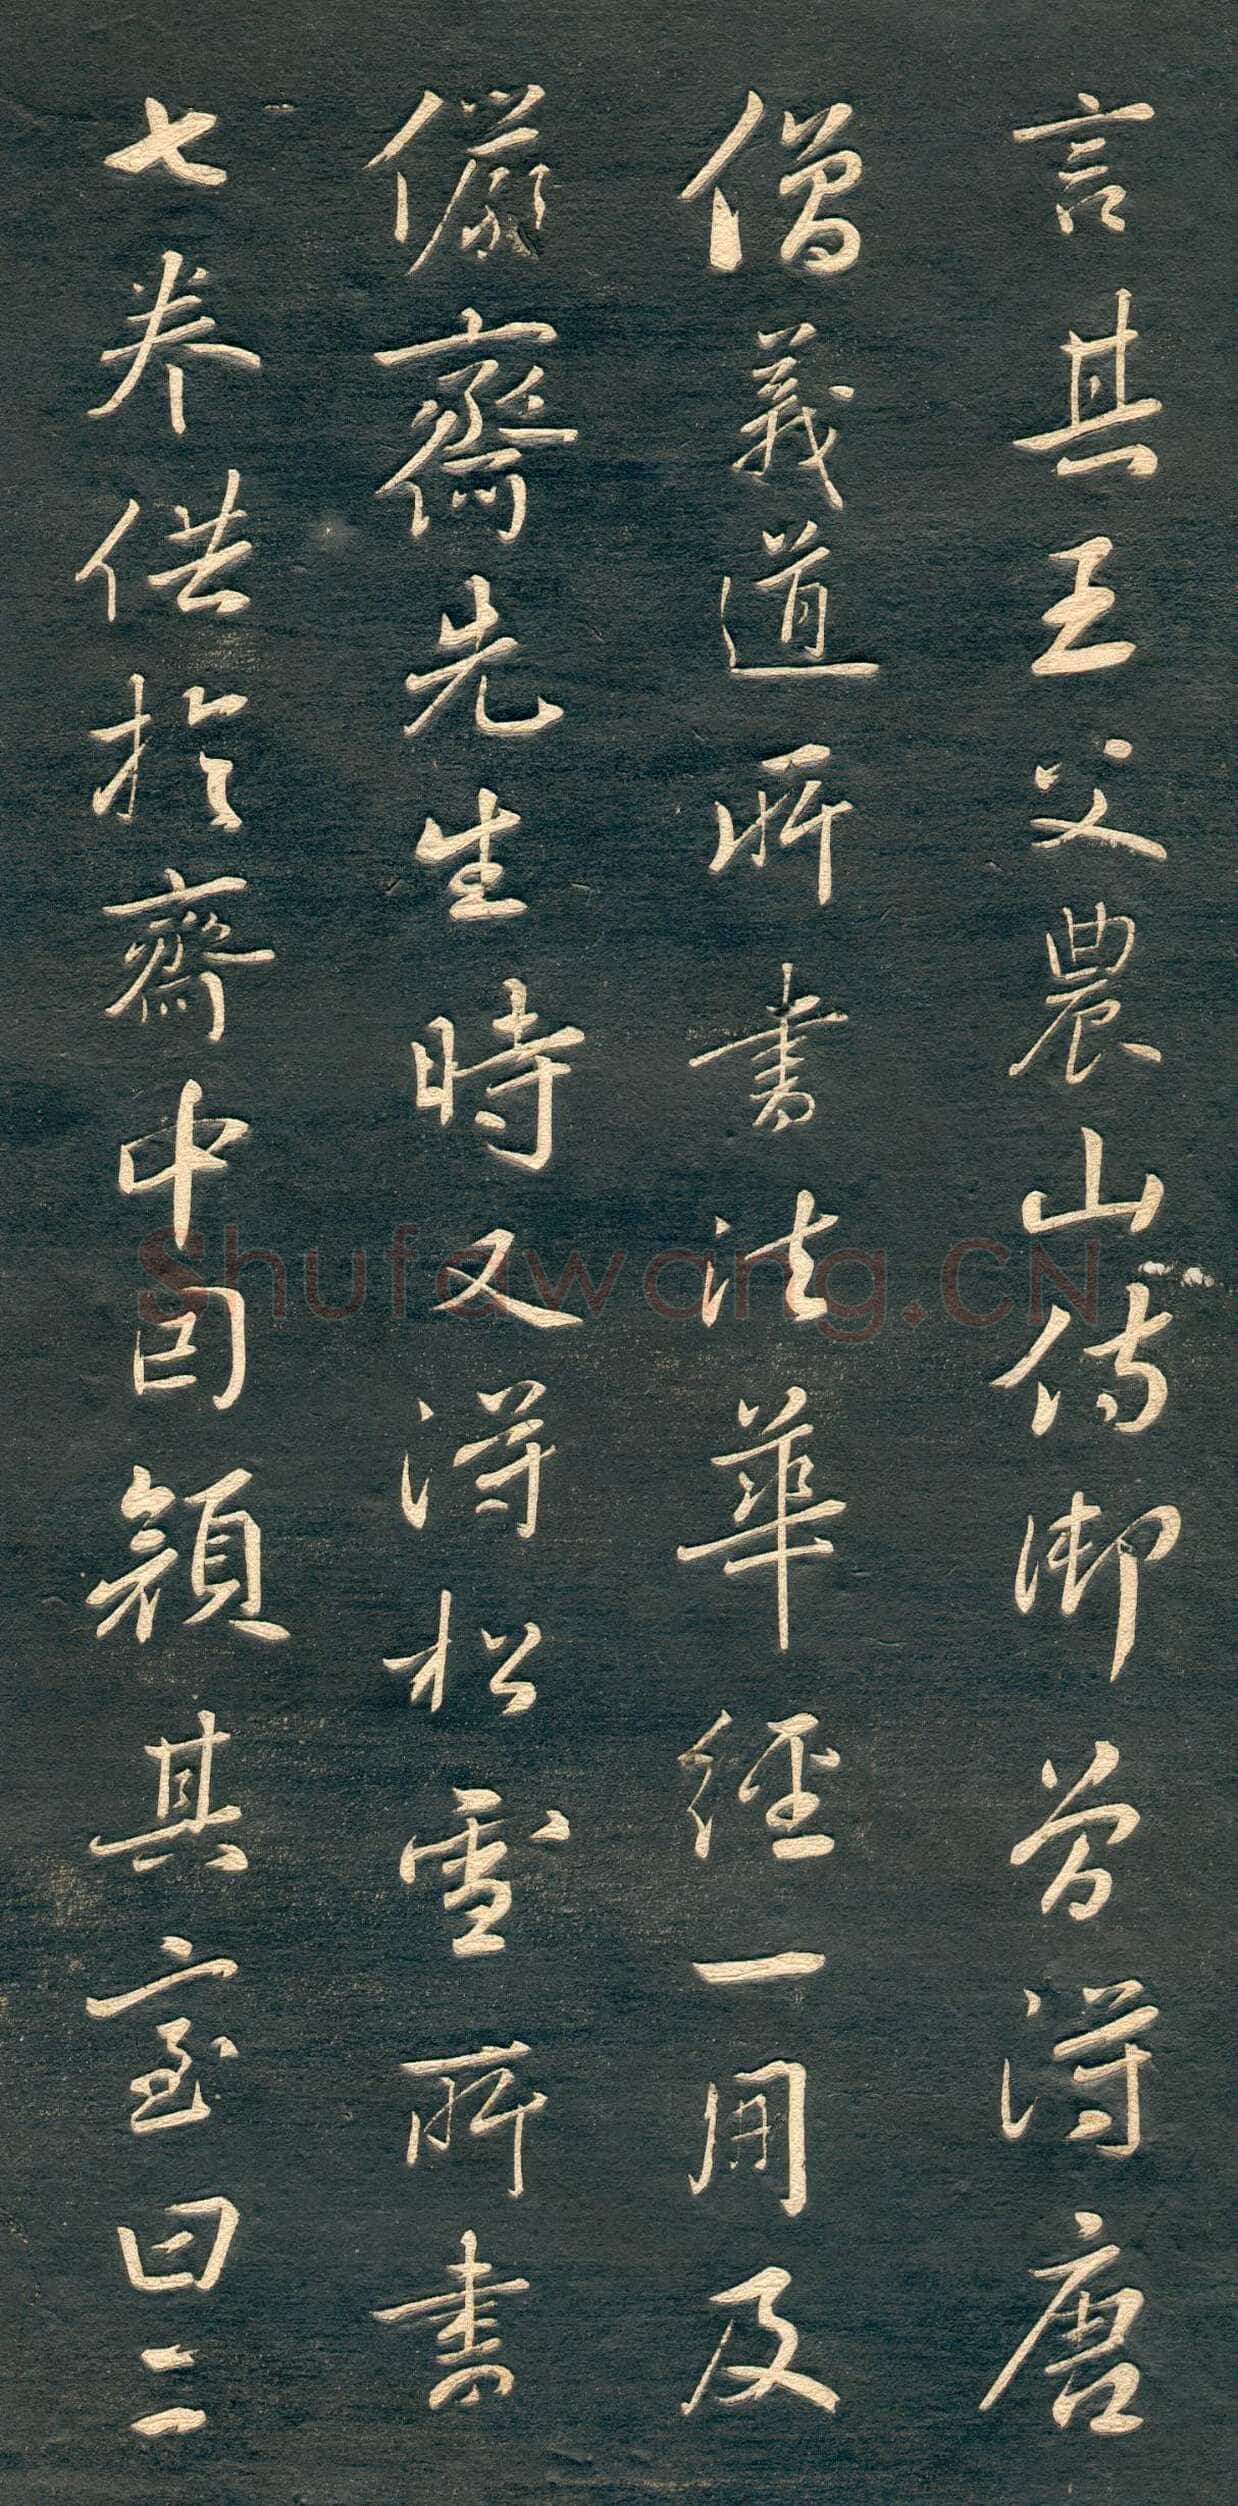 言其王父農山侍御曾得唐
僧義道所書法華經一冊及
儼齋先生時又得松雪所書
七卷供於齋中因顏其室曰二
shufawang.CN